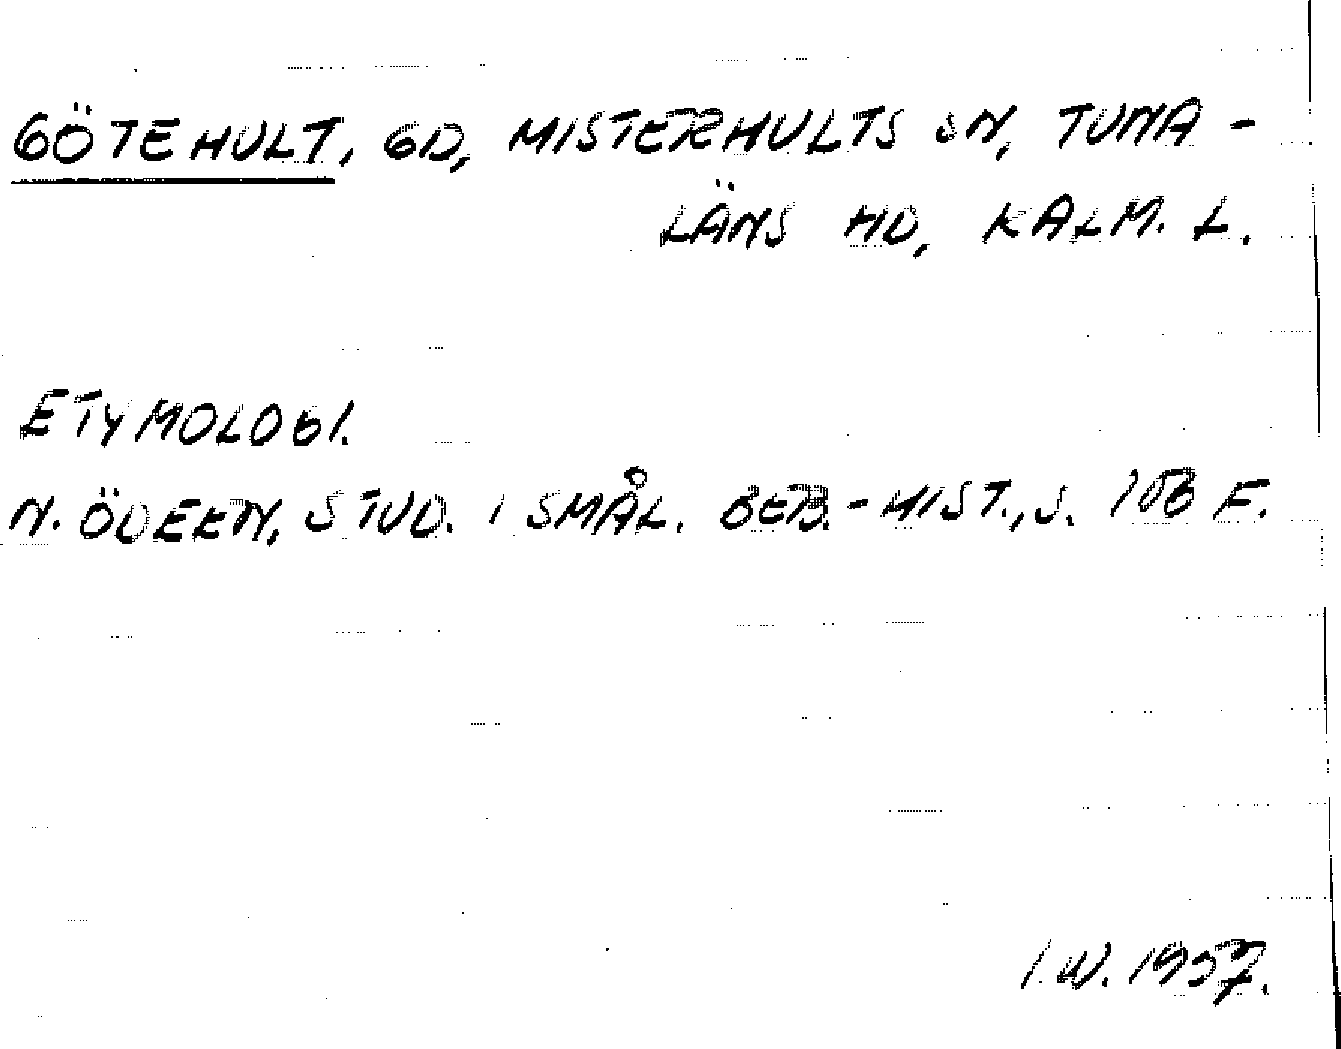 GÖTEHULT, GD, MISTERHULTS SN, TUNA-
LÄNS HD, KALM. L.
ETYMOLOGI.
N. ÖDEEN, STUD. I SMÅL. BEB.-HIST., S. 108 F.
I.W. 1957.